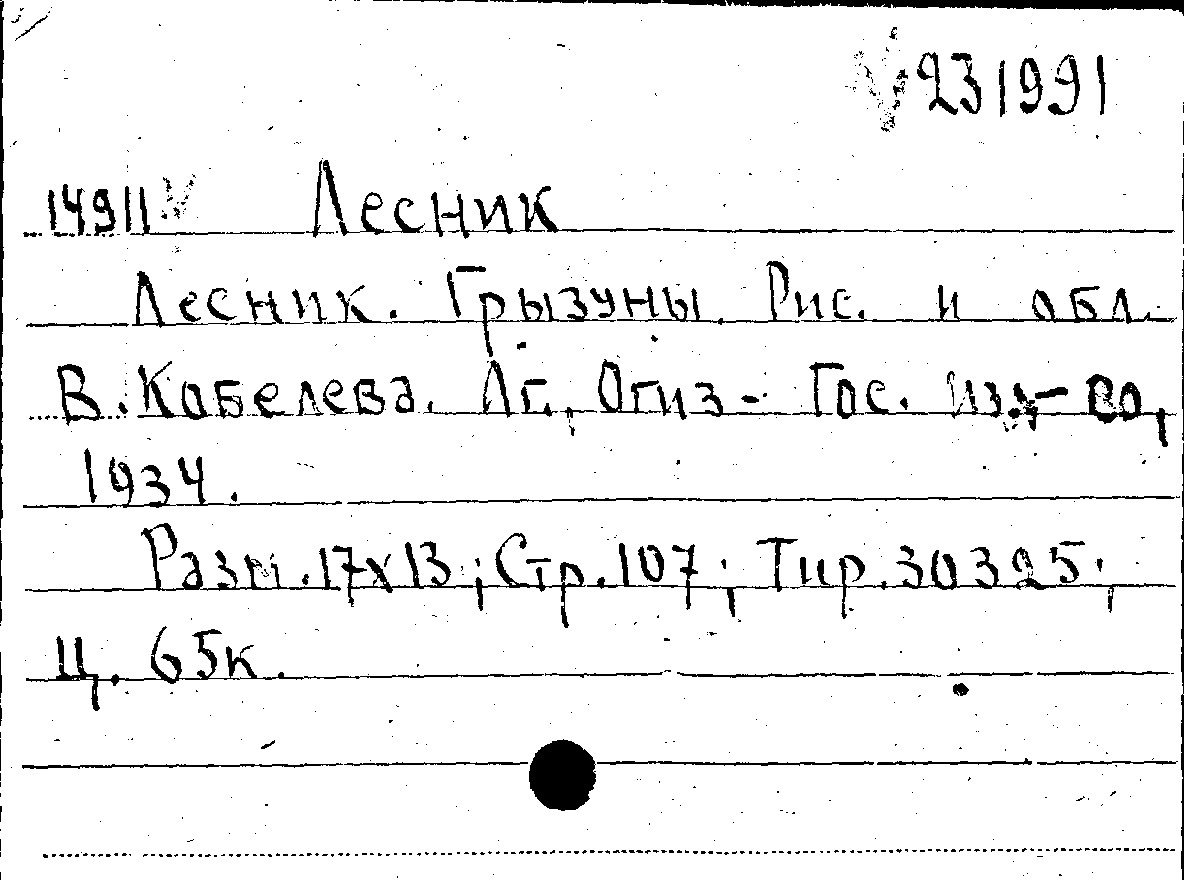 231991
14911 Лесник
Лесник. Грызуны. Рис. и обл.
В. Кобелева. Лг., Огиз - Гос. изд-во,
1934.
Разм. 17х13; Стр. 107; Тир. 30325;
Ц. 65к.